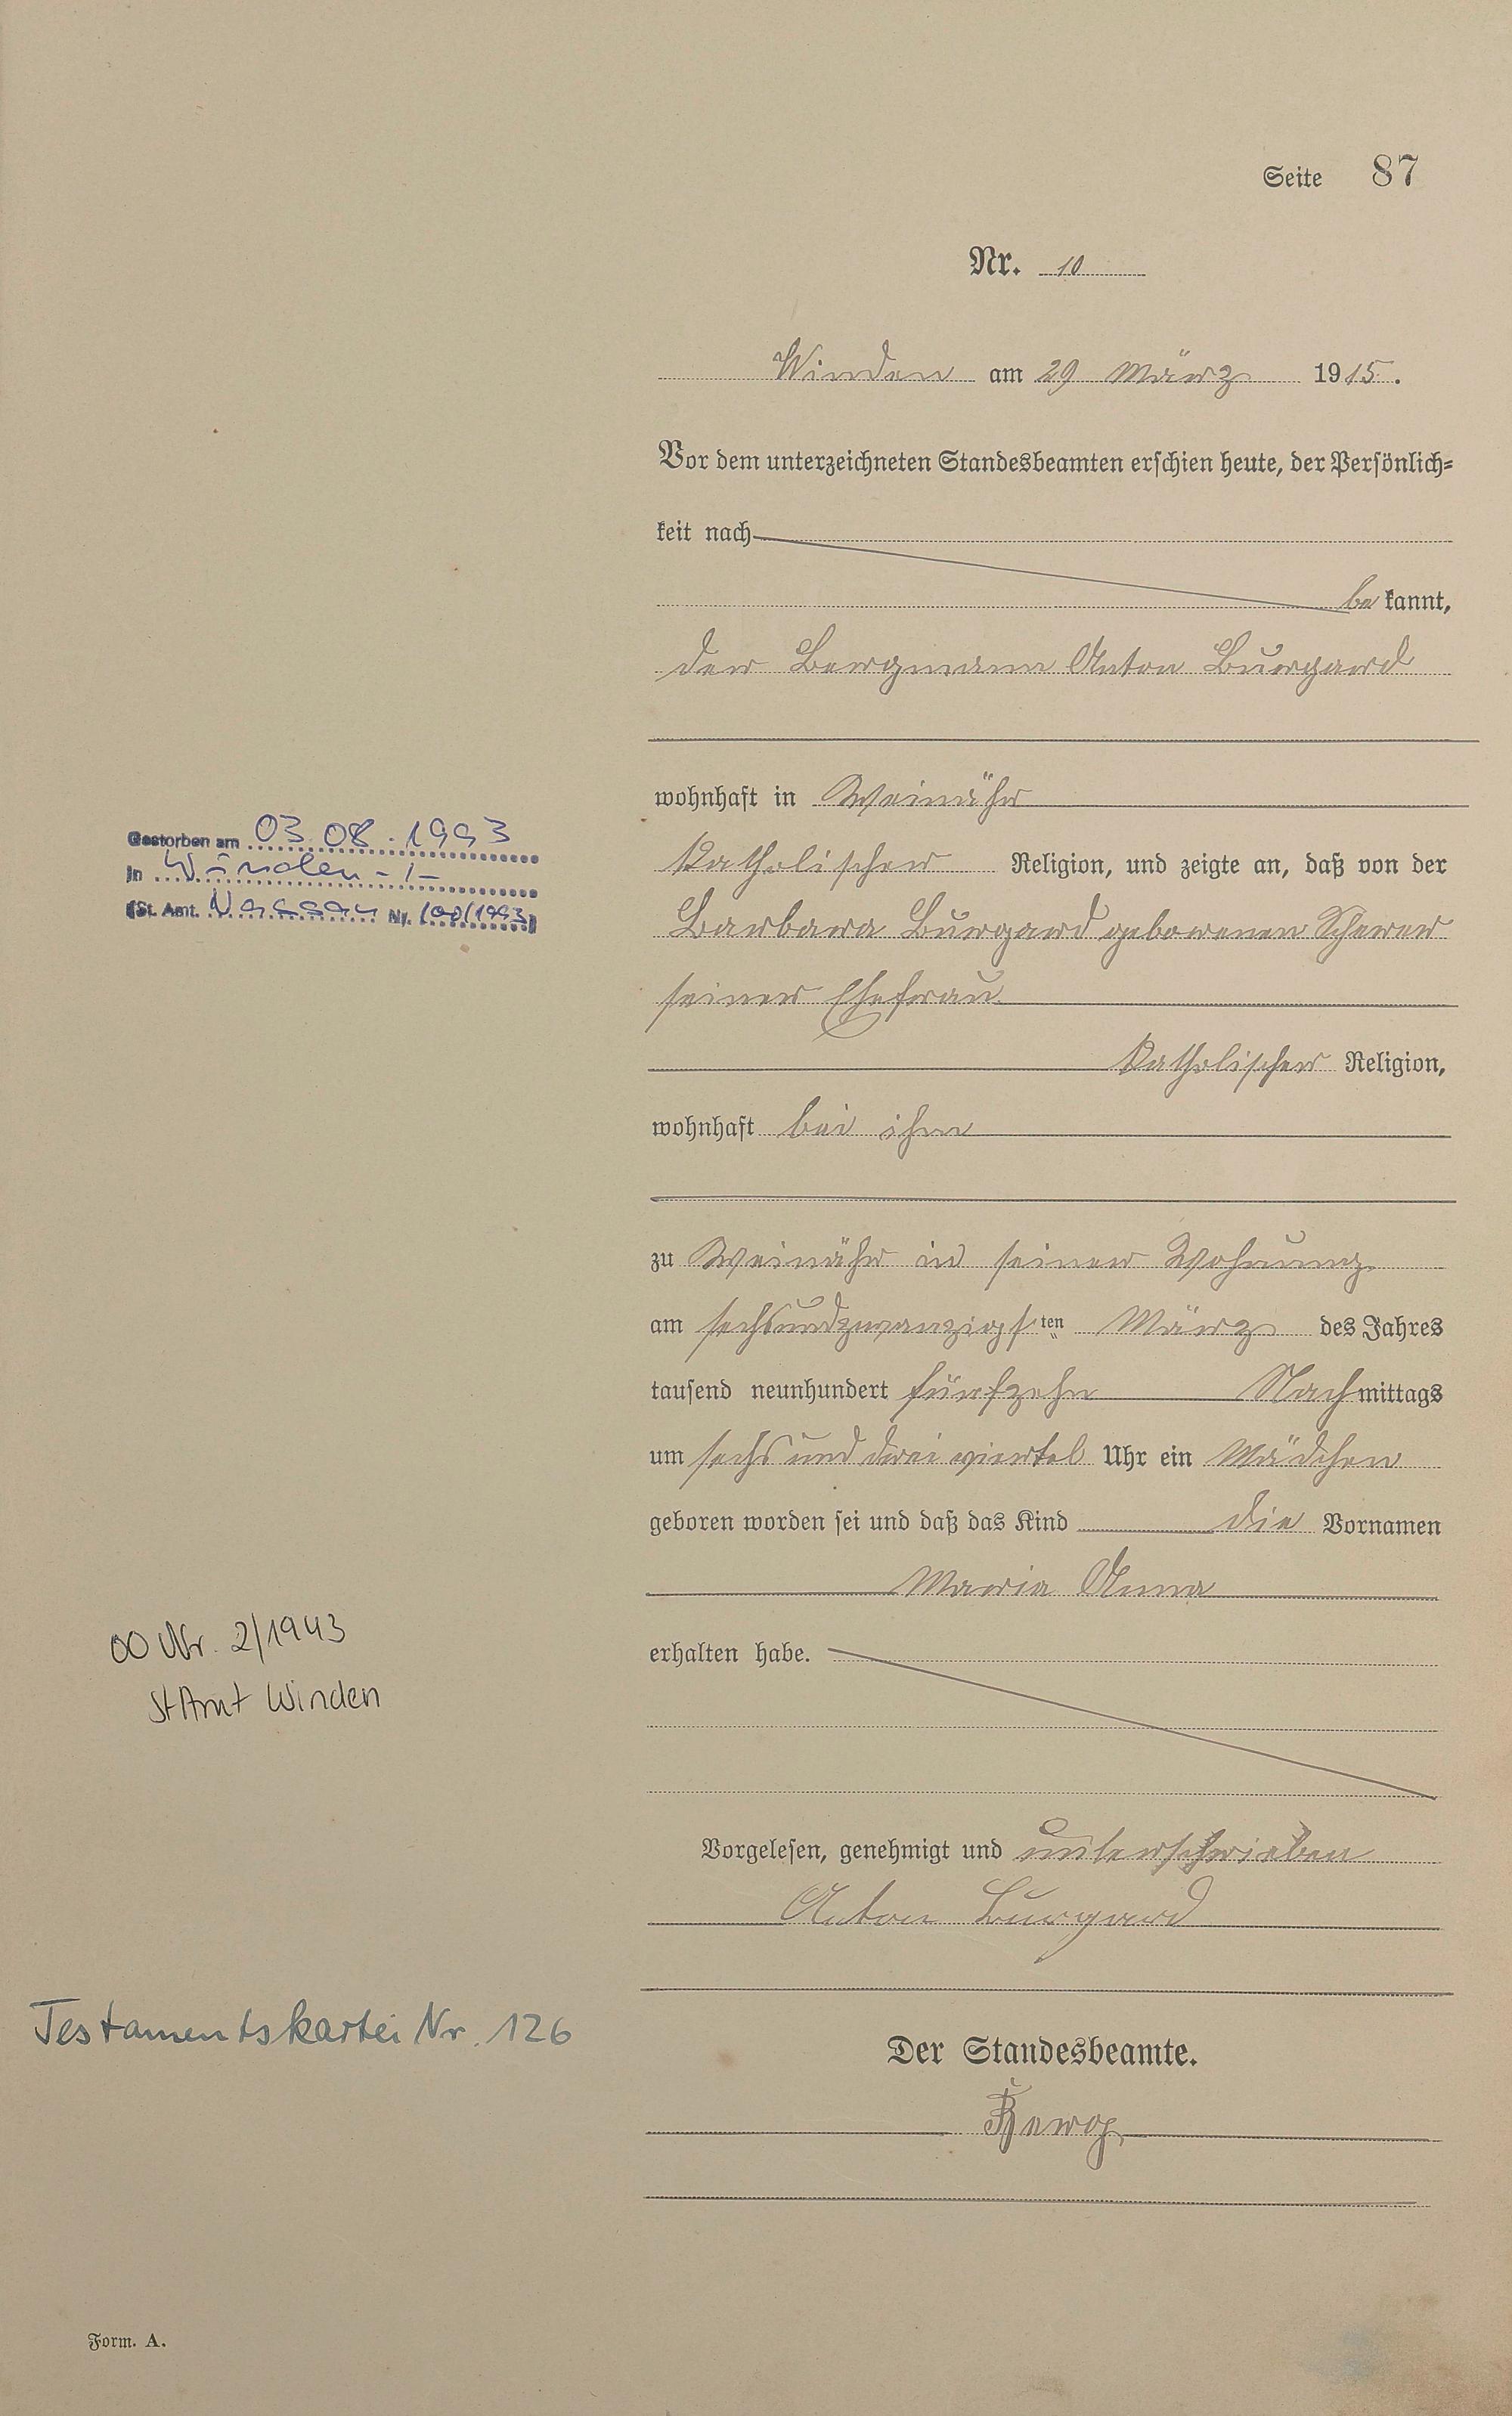 Seite 87
Nr. 10
Winden am 29 März 1915.
Vor dem unterzeichneten Standesbeamten erschien heute, der Persönlich=
keit nach
be kannt,
der Bergmann Anton Burgard
wohnhaft in Weinähr
Katholischer Religion, und zeigte an, daß von der
Barbara Burgard geborenen Scherer
seiner Ehefrau
Katholischer Religion,
wohnhaft bei ihm
zu Weinähr in seiner Wohnung
am sechsundzwanzigsten März des Jahres
tausend neunhundert fünfzehn Nachmittags
um sechs und drei viertel Uhr ein Mädchen
geboren worden sei und daß das Kind die Vornamen
Maria Anna
erhalten habe.
Vorgelesen, genehmigt und unterschrieben
Anton Burgard
Der Standesbeamte.
Gestorben am 03.08.1993
in Winden -1-
(St. Amt. Nassau Nr. 100/1993)
OO Nr. 2/1943
StAmt Winden
Testamentskartei Nr. 126
Form. A.